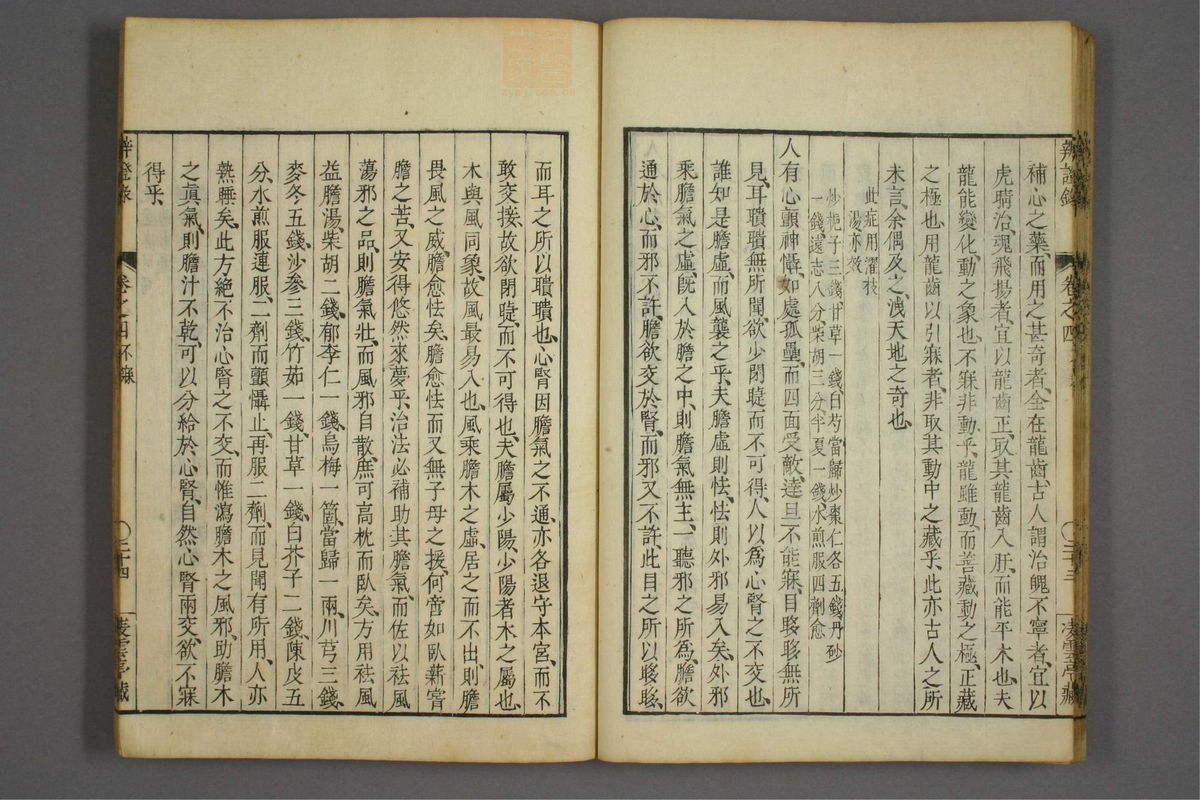 補心之藥而用之甚奇者、全在龍齒、古人謂治魄不寧者、宜以
虎睛、治魂飛揚者、宜以龍齒、正取其龍齒入肝、而能平木也、夫
龍能變化、動之象也、不寐非動乎、龍雖動、而善藏動之極、正藏
之極也、用龍齒以引寐者、非取其動中之藏乎、此亦古人之所
未言、余偶及之、洩天地之奇也、
此症用濯枝
湯亦效
炒梔子三錢甘草一錢白芍當歸炒棗仁各五錢丹砂
一錢遠志八分柴胡三分半夏一錢水煎服四劑愈
人有心顫神懾、如處孤壘、而四面受敵、達旦不能寐、目眵眵無所
見、耳聵聵無所聞、欲少閉睫而不可得、人以爲心腎之不交也、
誰知是膽虛、而風襲之乎、夫膽虛則怯、怯則外邪易入矣、外邪
乘膽氣之虛、旣入於膽之中、則膽氣無主、一聽邪之所爲、膽欲
通於心、而邪不許、膽欲交於腎、而邪又不許、此目之所以眵眵、
辨證錄
卷之四
〇三十三
凌雲亭藏
而耳之所以聵聵也、心腎因膽氣之不通、亦各退守本宮、而不
敢交接、故欲閉睫、而不可得也、夫膽屬少陽、少陽者、木之屬也、
木與風同象、故風最易入也、風乘膽木之虛、居之而不出、則膽
畏風之威、膽愈怯矣、膽愈怯而又無子母之援、何啻如臥薪嘗
膽之苦、又安得悠然來夢乎、治法必補助其膽氣、而佐以祛風
蕩邪之品、則膽氣壯、而風邪自散、庶可高枕而臥矣、方用祛風
益膽湯、柴胡二錢、郁李仁一錢、烏梅一箇、當歸一兩、川芎三錢、
麥冬五錢、沙參三錢、竹茹一錢、甘草一錢、白芥子二錢、陳皮五
分、水煎服、連服二劑而顫懾止、再服二劑、而見聞有所用、人亦
熟睡矣、此方絕不治心腎之不交、而惟瀉膽木之風邪、助膽木
之眞氣、則膽汁不乾、可以分給於心腎、自然心腎兩交、欲不寐
得乎、
辨證錄
卷之四不寐
〇三十四
凌雲亭藏